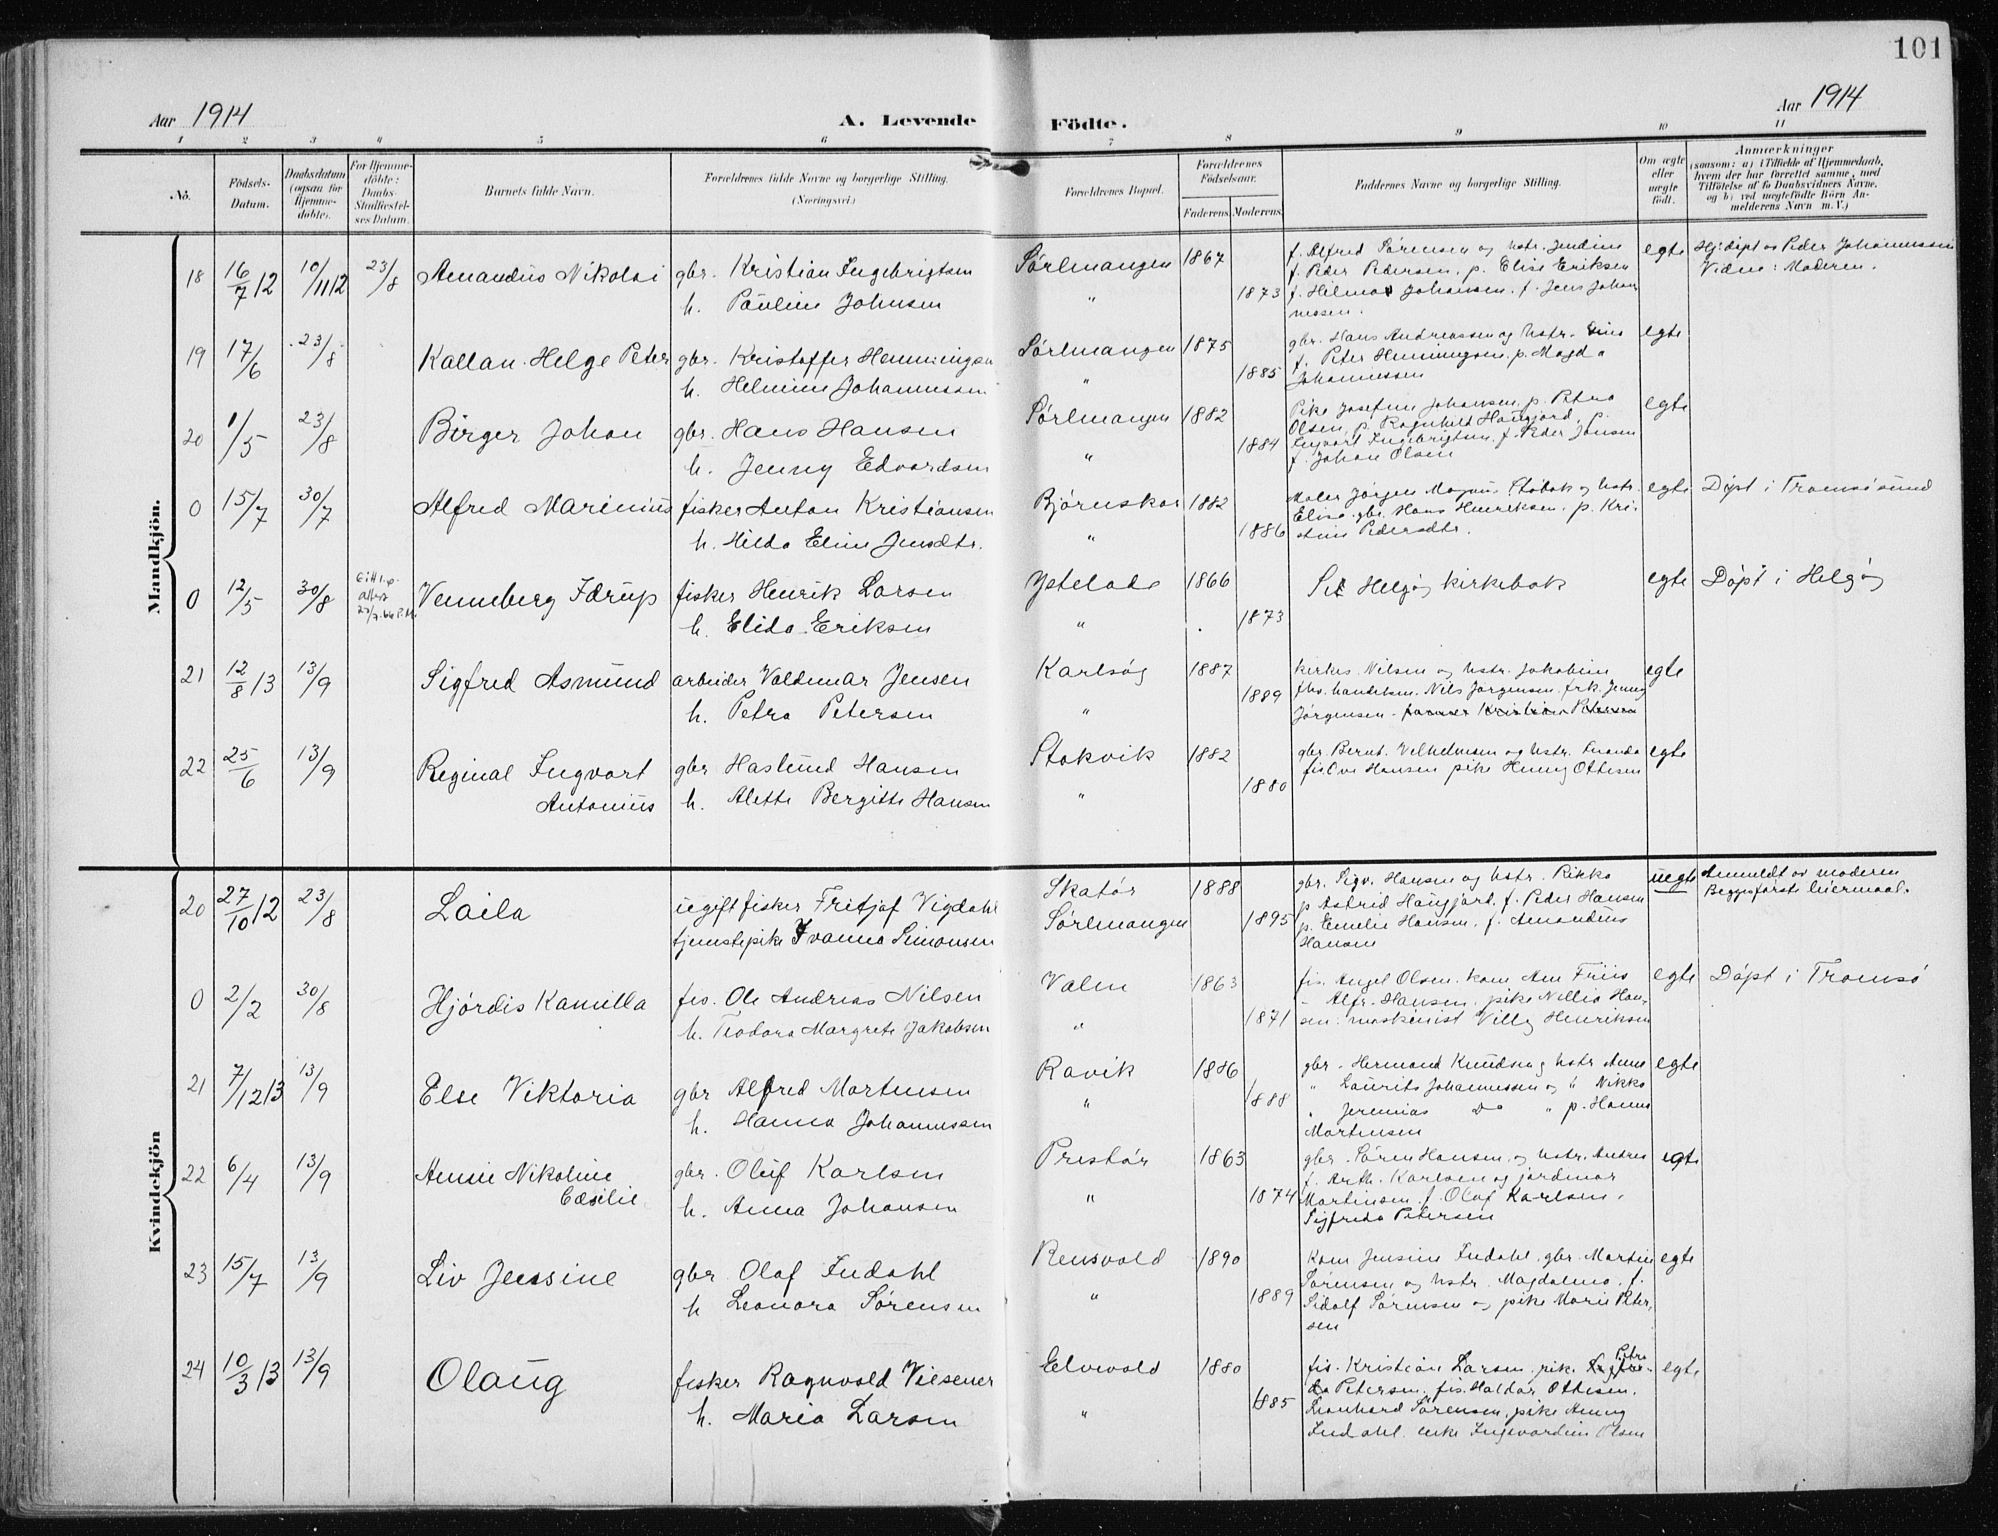 101
Aar 1914
A. Levende Födte.
Aar 1914
1 2 3 4 5 6 7 8 9 10 11
No.
Födsels-Datum.
Daabsdatum (ogsaa for Hjemme-døbte).
For Hjemme-döbte: Daabs-Stadfæstel-ses Datum.
Barnets fulde Navn.
Forældrenes fulde Navne og borgerlige Stilling.
(Næringsvei.)
Forældrenes Bopæl.
Forældrenes Födselsaar.
Faderens. Moderens.
Faddernes Navne og borgerlige Stilling.
Om ægte eller uægte födt.
Anmærkninger
(saasom: a) i Tilfælde af Hjemmedaab, hvem der har forrettet samme, med Tilföielse af to Daabsvidners Navne, og b) ved uægtefödte Börn Anmelderens Navn m. V.)
Mandkjön.
18 16/7 12 10/11 12 23/8 Amandus Nikolai gbr. Kristian Ingebrigtsen Sørlenangen 1867 f. Alfred Sørensen og hstr. Jendine egte Hj.døpt av Peder Johannessen
h. Pauline Johnsen " 1873 f. Peder Pedersen, p. Elise Eriksen Vidne: Moderen.
f. Hilmar Johansen. f. Jens Johan
nessen.
19 17/6 23/8 Kallan Helge Peter gbr. Kristoffer Henningsen Sørlenangen 1875 gbr. Hans Andreassen og hstr. egte
h. Helmine Johannessen " 1885 f. Peter Henningsen. p. Magda
Johannessen
20 1/5 23/8 Birger Johan gbr. Hans Hansen Sørlenangen 1882 Pike Josefine Johansen, p. Petra egte
h. Jenny Edvardsen " 1884 Olsen, p. Ragnhild Haugjord, p.
Ingvart Ingebrigtsen, f. Peder Jensen
f. Johan Olsen
0 15/7 30/7 Alfred Marinius fisker Anton Kristiansen Bjørnskar 1882 Maler Jørgen Magnus Stobak og hstr. egte Døpt i Tromsøsund
h. Hilda Eline Jensdtr. " 1886 Elisa. gbr. Hans Henriksen. p. Kri-
stine Pedersdtr.
0 12/5 30/8 Venneberg Idrup fisker Henrik Larsen Ystelade 1866 Se Helgøy kirkebok egte Døpt i Helgøy
h. Elida Eriksen " 1873
21 12/8 13 13/9 Sigfred Asmund arbeider Valdemar Jensen Karlsøy 1887 kirkes. Nilsen og hstr. Jakobine egte
h. Petra Petersen " 1889 fhv. handelsm. Nils Jørgensen. frk. Jenny
Jørgensen Kristian Petersen
22 25/6 13/9 Reginal Ingvart gbr Haslund Hansen Stakvik 1882 gbr. Bernt. Vilhelmsen og hstr. Amanda egte
Antonius h. Alette Bergitte Hansen " 1880 fis Ove Hansen pike Henny Ottesen
Kvindekjön
20 27/10 12 23/8 Laila ugift fisker Fritjof Vigdahl Skatør 1888 gbr. Sigv. Hansen og hstr. Rikka uegte Anmeldt av moderen
tjenestepike Ivanna Simonsen Sørlenangen 1895 p Astrid Haugjort. f. Peder Hansen Begges første leiermaal.
p. Emelie Hansen. f. Amandius
Hansen
0 2/2 30/8 Hjørdis Kamilla fis. Ole Andreas Nilsen Valen 1863 fis. Angel Olsen. kone Ane Friis egte Døpt i Tromsø
h. Teodora Margrete Jakobsen " 1871 - Alfr. Hansen. pike Nellia Han-
sen. maskinist Villy Henriksen
21 7/12 13 13/9 Else Viktoria gbr Alfred Mortensen Ravik 1886 gbr. Hermand Knudsen og hstr Anne egte
h. Hanna Johannessen " 1888 " Laurits Johannessen og " Nikka
" Jeremias Do " p. Hanna
Mortensen
22 6/4 13/9 Annie Nikoline gbr. Oluf Karlsen Prestør 1863 gbr. Søren Hansen. og hstr. Andrea egte
Cæsilie h. Anna Johansen " 1874 f. Arth. Karlsen og jordmor
Martinsen. f. Olaf Karlsen.
Sigfreda Petersen
23 15/7 13/9 Liv Jensine gbr Olaf Indahl Rensvold 1890 Kone Jensine Indahl. gbr. Martin egte
h Leonora Sørensen " 1889 Sørensen og hstr. Magdalena. f.
Sidolf Sørensen og pike Marie Peter-
sen
24 10/3 13 13/9 Olaug fisker Ragnvald Vilsener Elvevold 1880 fis. Kristian Larsen. pike Petra egte
h. Maria Larsen " 1885 Petersen. fis. Haldor Ottesen.
Leonhard Sørensen. pike Henny
Indahl. enke Ingevardine Olsen